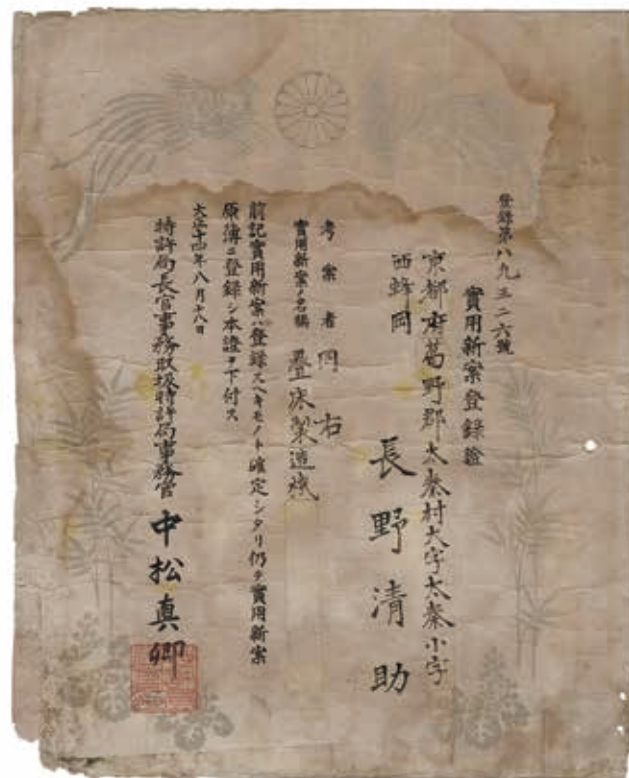 登錄第八九三二六號
實用新案登錄證
京都府葛野郡太秦村大字太秦小字
西蜂岡
長野清助
考案者 同右
實用新案ノ名稱 疊床製造機
前記實用新案ハ登錄スヘキモノト確定シタリ仍テ實用新案
原簿ニ登錄シ本證ヲ下付ス
大正十四年八月十八日
特許局長官事務取扱特許局事務官 中松真卿